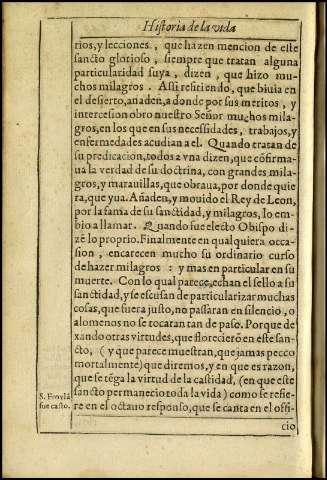 Historia de la vida
rios, y lecciones, que hazen mencion de este
sancto glorioso, siempre que tratan alguna
particularidad suya, dizen, que hizo mu-
chos milagros. Assi resiriendo, que biuia en
el desierto, añaden, a donde por sus meritos, y
intercesion obro nuestro Señor muchos mila-
gros, en los que en sus necessidades, trabajos, y
enfermedades acudian a el. Quando tratan de
su predicacion, todos a vna dizen, que cõfirma-
ua la verdad de su doctrina, con grandes mila-
gros, y marauillas, que obraua, por donde quie
ra, que yua. Añaden, y mouido el Rey de Leon,
por la fama de su sanctidad, y milagros, lo em-
bio a llamar. Quando fue electo Obispo di-
zē lo proprio. Finalmente en qualquiera occa-
sion, encarecen mucho su ordinario curso
de hazer milagros: y mas en particular en su
muerte. Con lo qual parece, echan el sello a su
sanctidad, y se escusan de particularizar muchas
cosas, que fuera justo, no passaran en silencio, o
alomenos no se tocaran tan de paso. Porque de
xando otras virtudes, que florecierō en este san-
cto, (y que parece muestran, que jamas pecco
mortalmente) que diremos, y en que es razon,
que se tēga la virtud de la castidad, (en que este
sancto permanecio toda la vida) como se refie-
S. Froylã
re en el octauo responso, que se canta en el offi-
fue casto.
cio